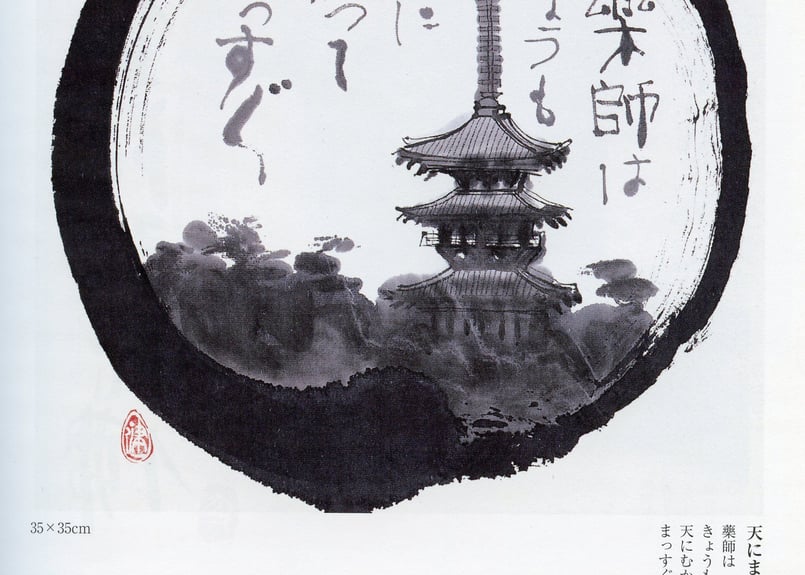 藥師は
ょうも
に
って
っすぐ
35×35cm
天にま
藥師は
きょうも
天にむか
まっすぐ